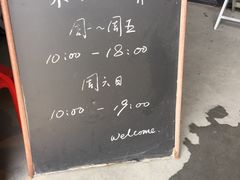 周一~周五
10:00 - 18:00
周六日
10:00 - 19:00
welcome.